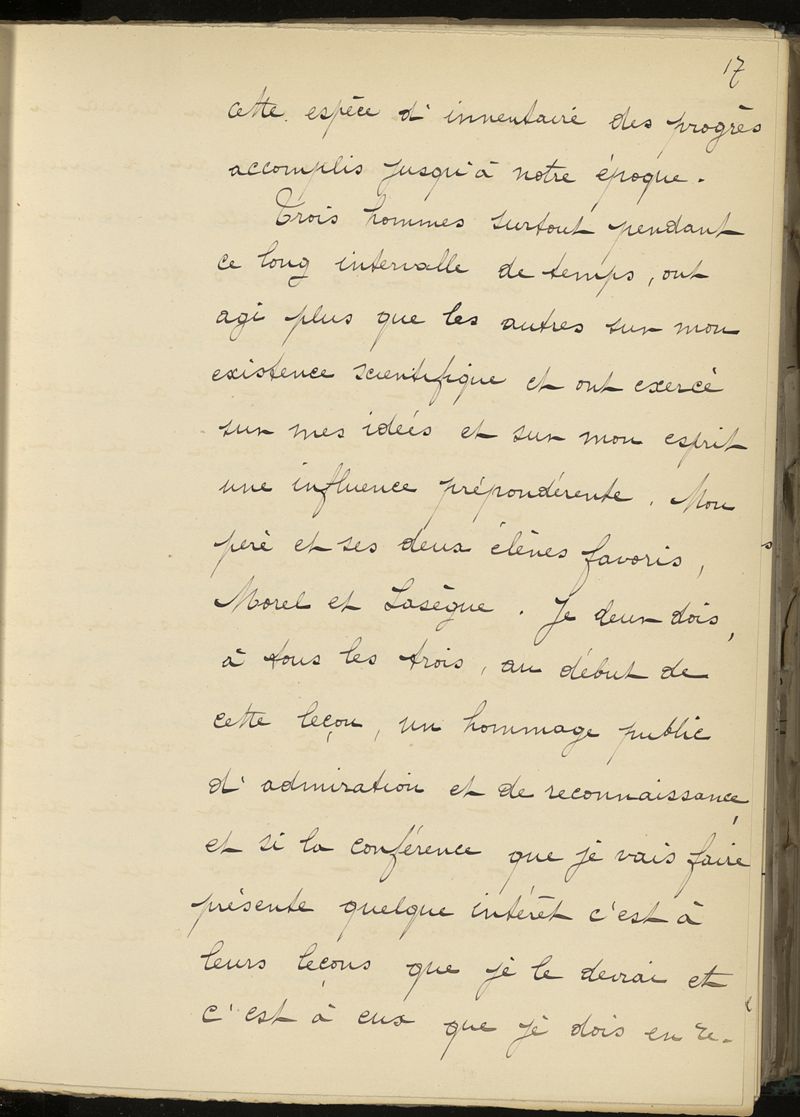 17
cette espèce d'inventaire des progrès
accomplis jusqu'à notre époque.
Trois hommes surtout pendant
ce long intervalle de temps, ont
agi plus que les autres sur mon
existence scientifique et ont exercé
sur mes idées et sur mon esprit
une influence prépondérente. Mon
père et ses deux élèves favoris,
Morel et Lasègue. Je leur dois,
à tous les trois, au début de
cette leçon, un hommage public
d'admiration et de reconnaissance,
et si la conférence que je vais faire
présente quelque intérêt c'est à
leurs leçons que je le devrai et
c'est à eux que je dois en re-